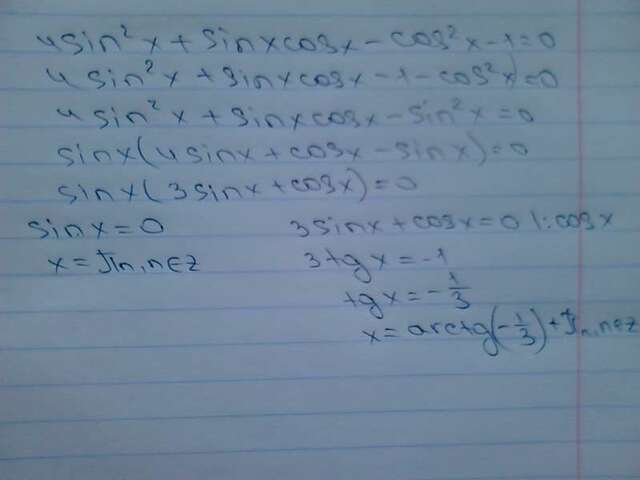 4sin²x + sinxcosx - cos²x - 1 = 0
4sin²x + sinxcosx - 1 - cos²x) = 0
4sin²x + sinxcosx - sin²x = 0
sinx(4sinx + cosx - sinx) = 0
sinx(3sinx + cosx) = 0
sinx = 0
x = πn, n∈z
3sinx + cosx = 0 |:cosx
3tgx = -1
tgx = -1/3
x = arctg(-1/3) + πn, n∈z